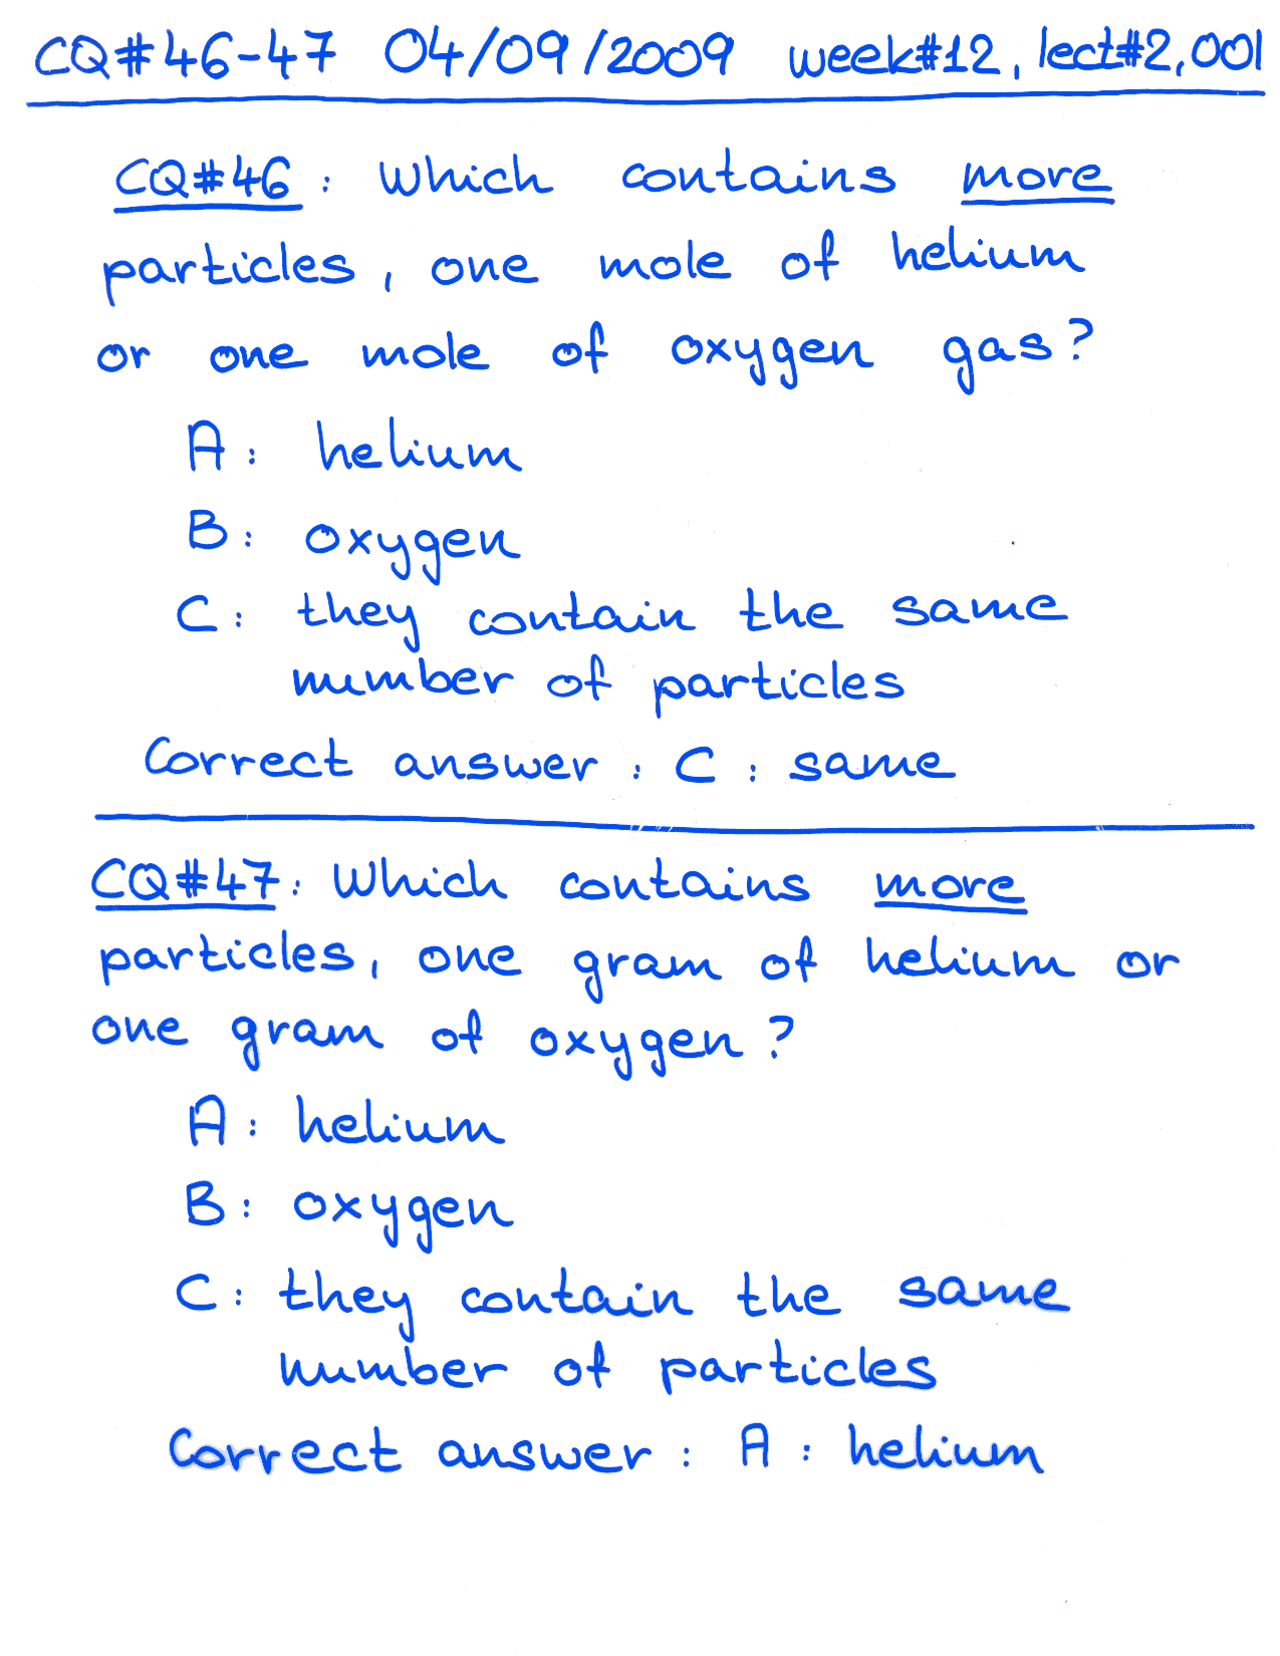 CQ#46-47 04/09/2009 week#12, lect#2,001
CQ#46: Which contains more
particles, one mole of helium
or one mole of oxygen gas?
A: helium
B: oxygen
C: they contain the same
number of particles
Correct answer: C: same
CQ#47: Which contains more
particles, one gram of helium or
one gram of oxygen?
A: helium
B: oxygen
C: they contain the same
number of particles
Correct answer: A: helium